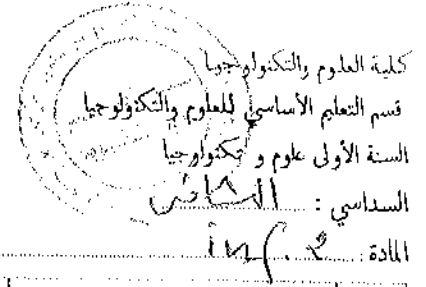 كلية العلوم والتكنولوجيا
قسم التعليم الأساسي للعلوم والتكنولوجيا
السنة الأولى علوم و تكنولوجيا
السداسي : الثاني
المادة :